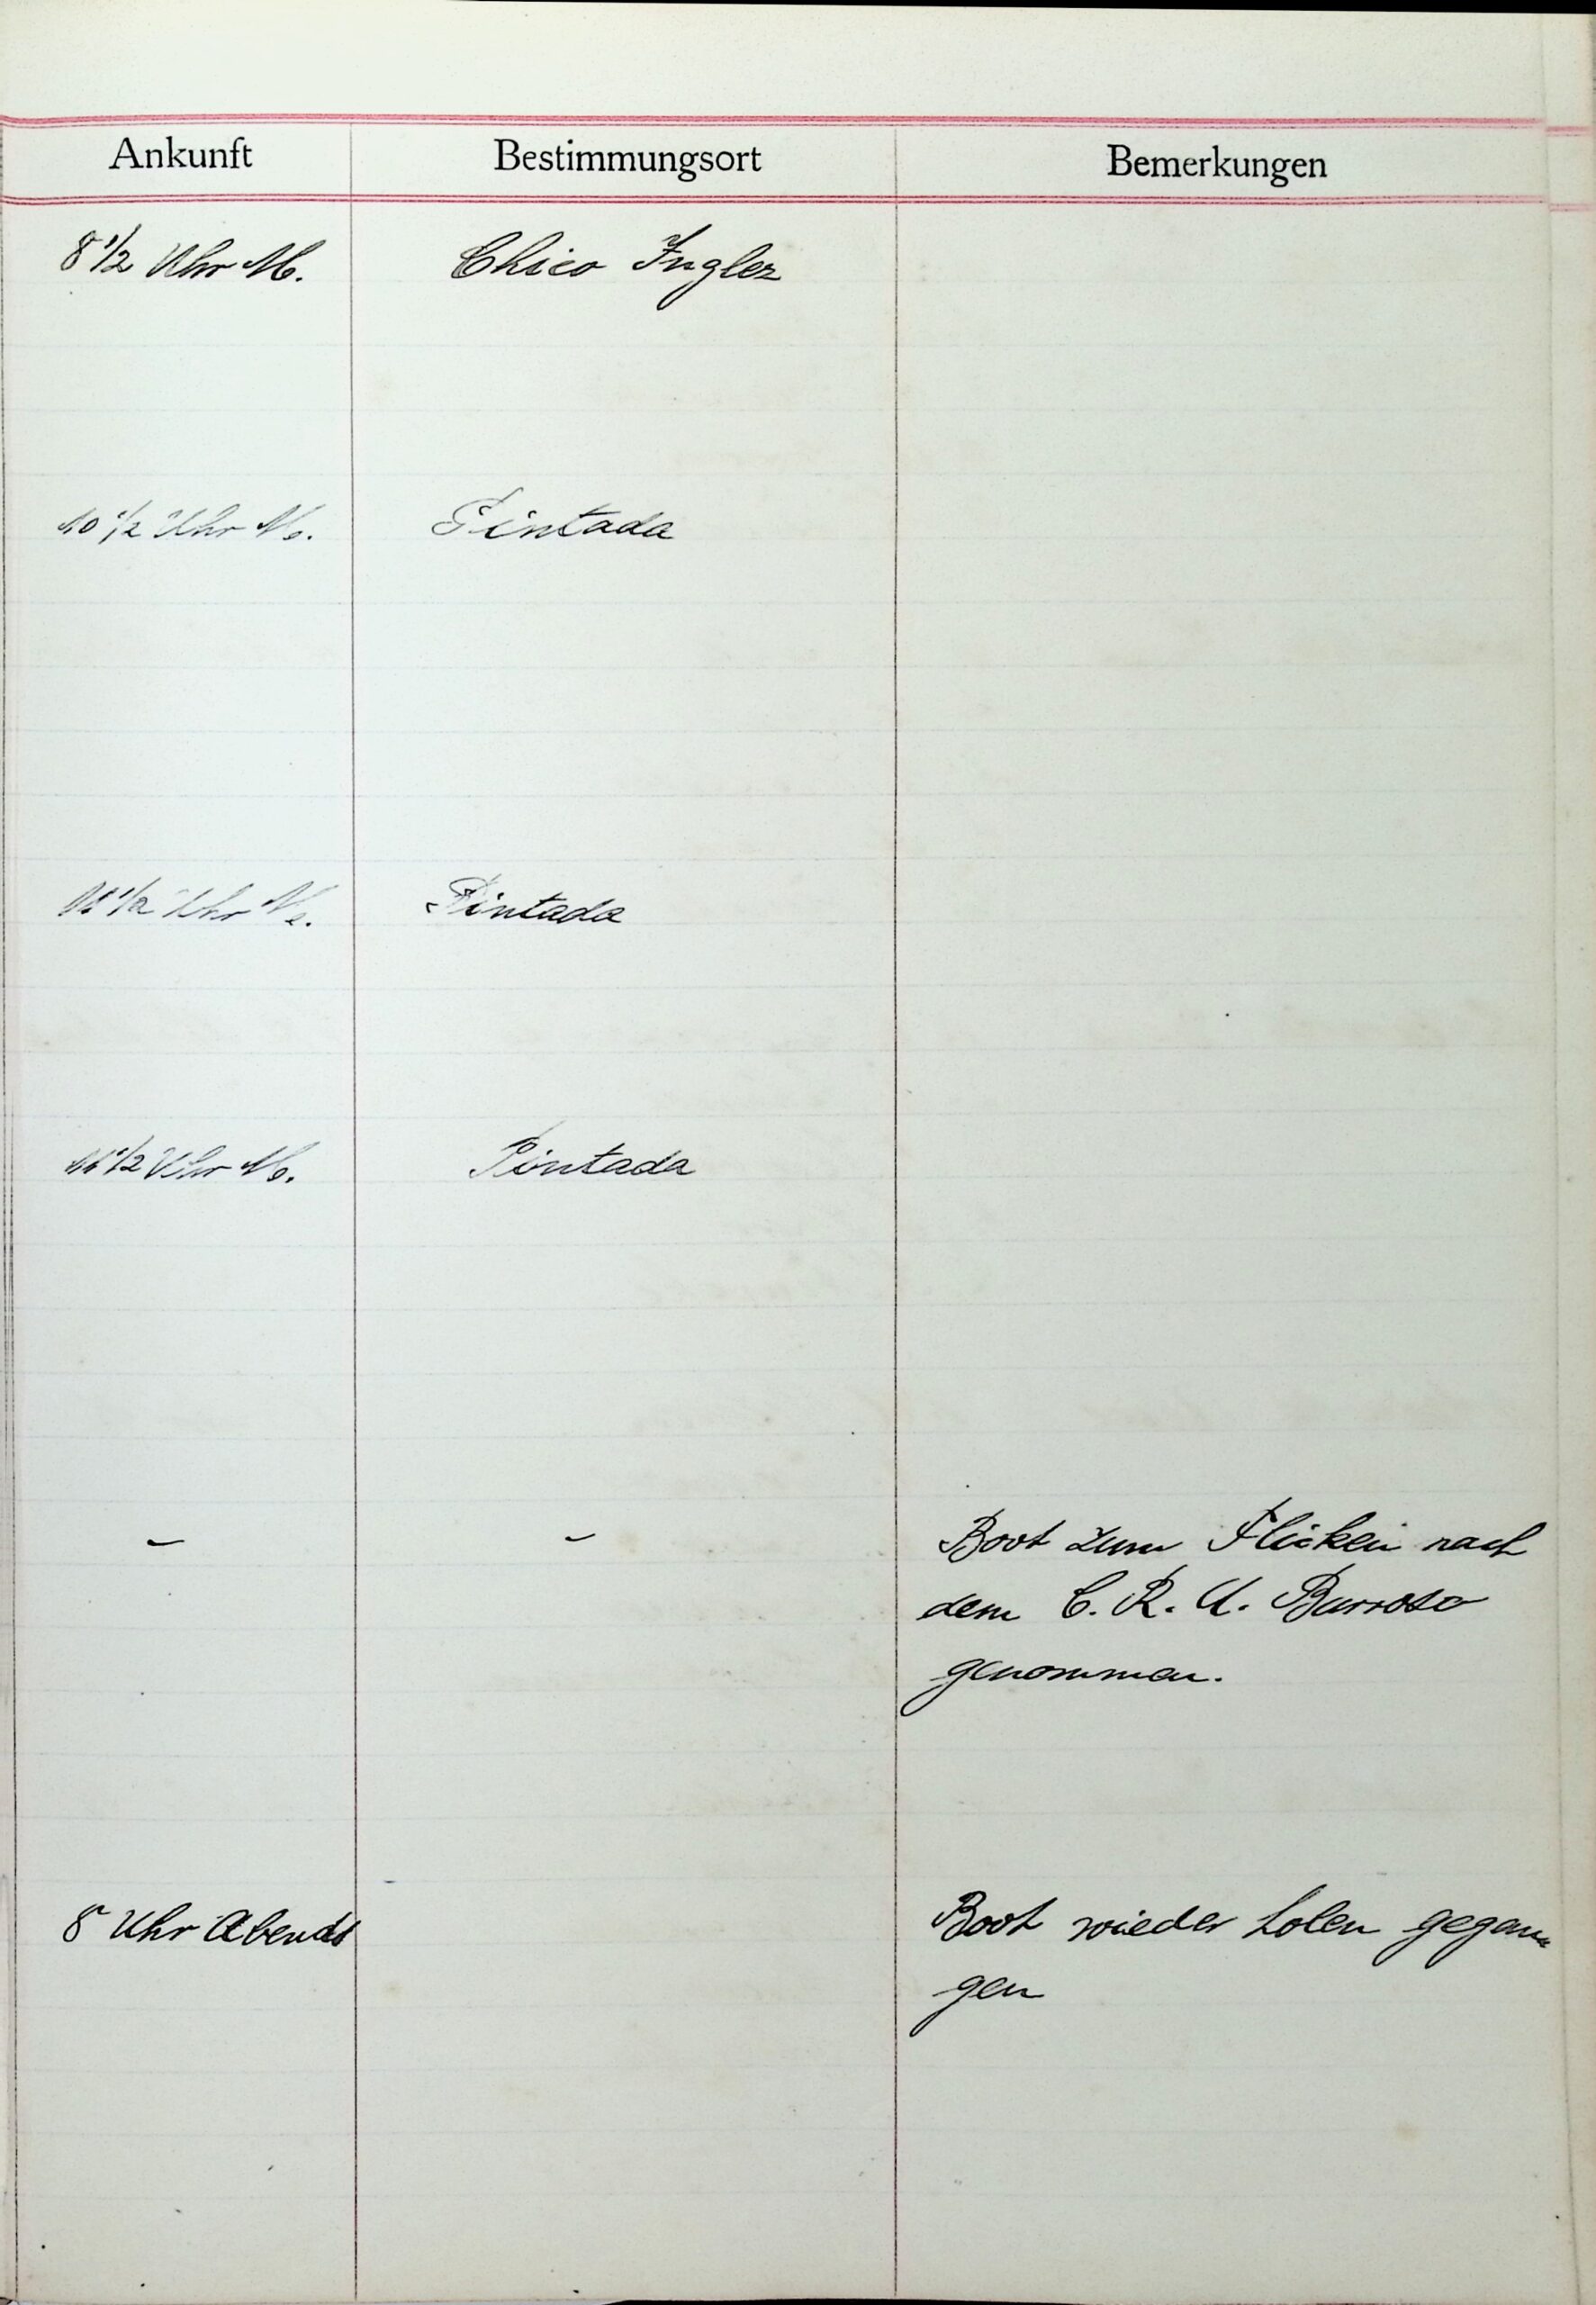 Ankunft Bestimmungsort Bemerkungen
8 1/2 Uhr M. Chico Inglez
10 1/2 Uhr M. Pintada
1/2 Uhr Pintada
11 1/2 Uhr M. Pintada
- - Boot zum Flicken nach
dem C. R. A. Barroso
genommen.
8 Uhr Abends Boot wieder holen gegan-
gen